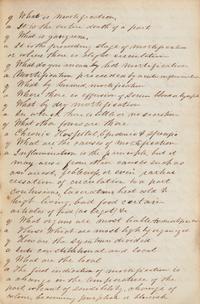 q What is Mortification
a It is the entire death of a part
q What is gangrene
a It is the preceding stage of mortification
or where there is slight circulation
q What do you mean by hot Mortification
a Mortification preceded by acute inflammation
q What by humid mortification
a Where there is effusion of Serum
q What by dry mortification
a In which there is little or no
q What other forms are there
a Chronic Hospital, epidemic &
q What are the causes of mortification
a Inflammation is the principle, but it
may arise from other causes such as
or even partial
cessation of circulation to a part
heat cold &
high living, bad food certain
articles of food as &c
q What organs are most liable to mortification
a Those Which are most highly organized
q How are the Symptoms divided
a Into constitutional and local
q What are the local
a The first indication of mortification is
a change in the of the
part, or loss of sensibility, change of
color, becoming purplish or bluish